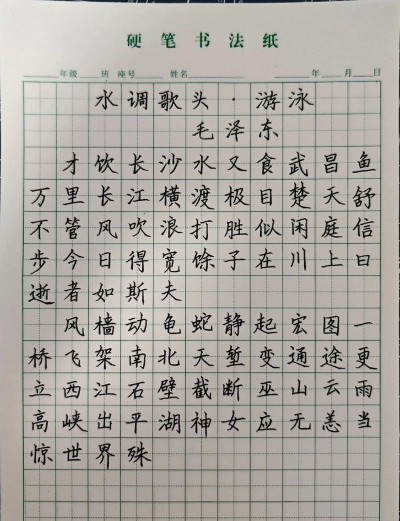 硬笔书法纸
年级 班 座号 姓名 年 月 日
水调歌头·游泳
毛泽东
才饮长沙水又食武昌鱼
万里长江横渡极目楚天舒
不管风吹浪打胜似闲庭信
步今日得宽馀子在川上曰
逝者如斯夫
风樯动龟蛇静起宏图一
桥飞架南北天堑变通途更
立西江石壁截断巫山云雨
高峡出平湖神女应无恙当
惊世界殊